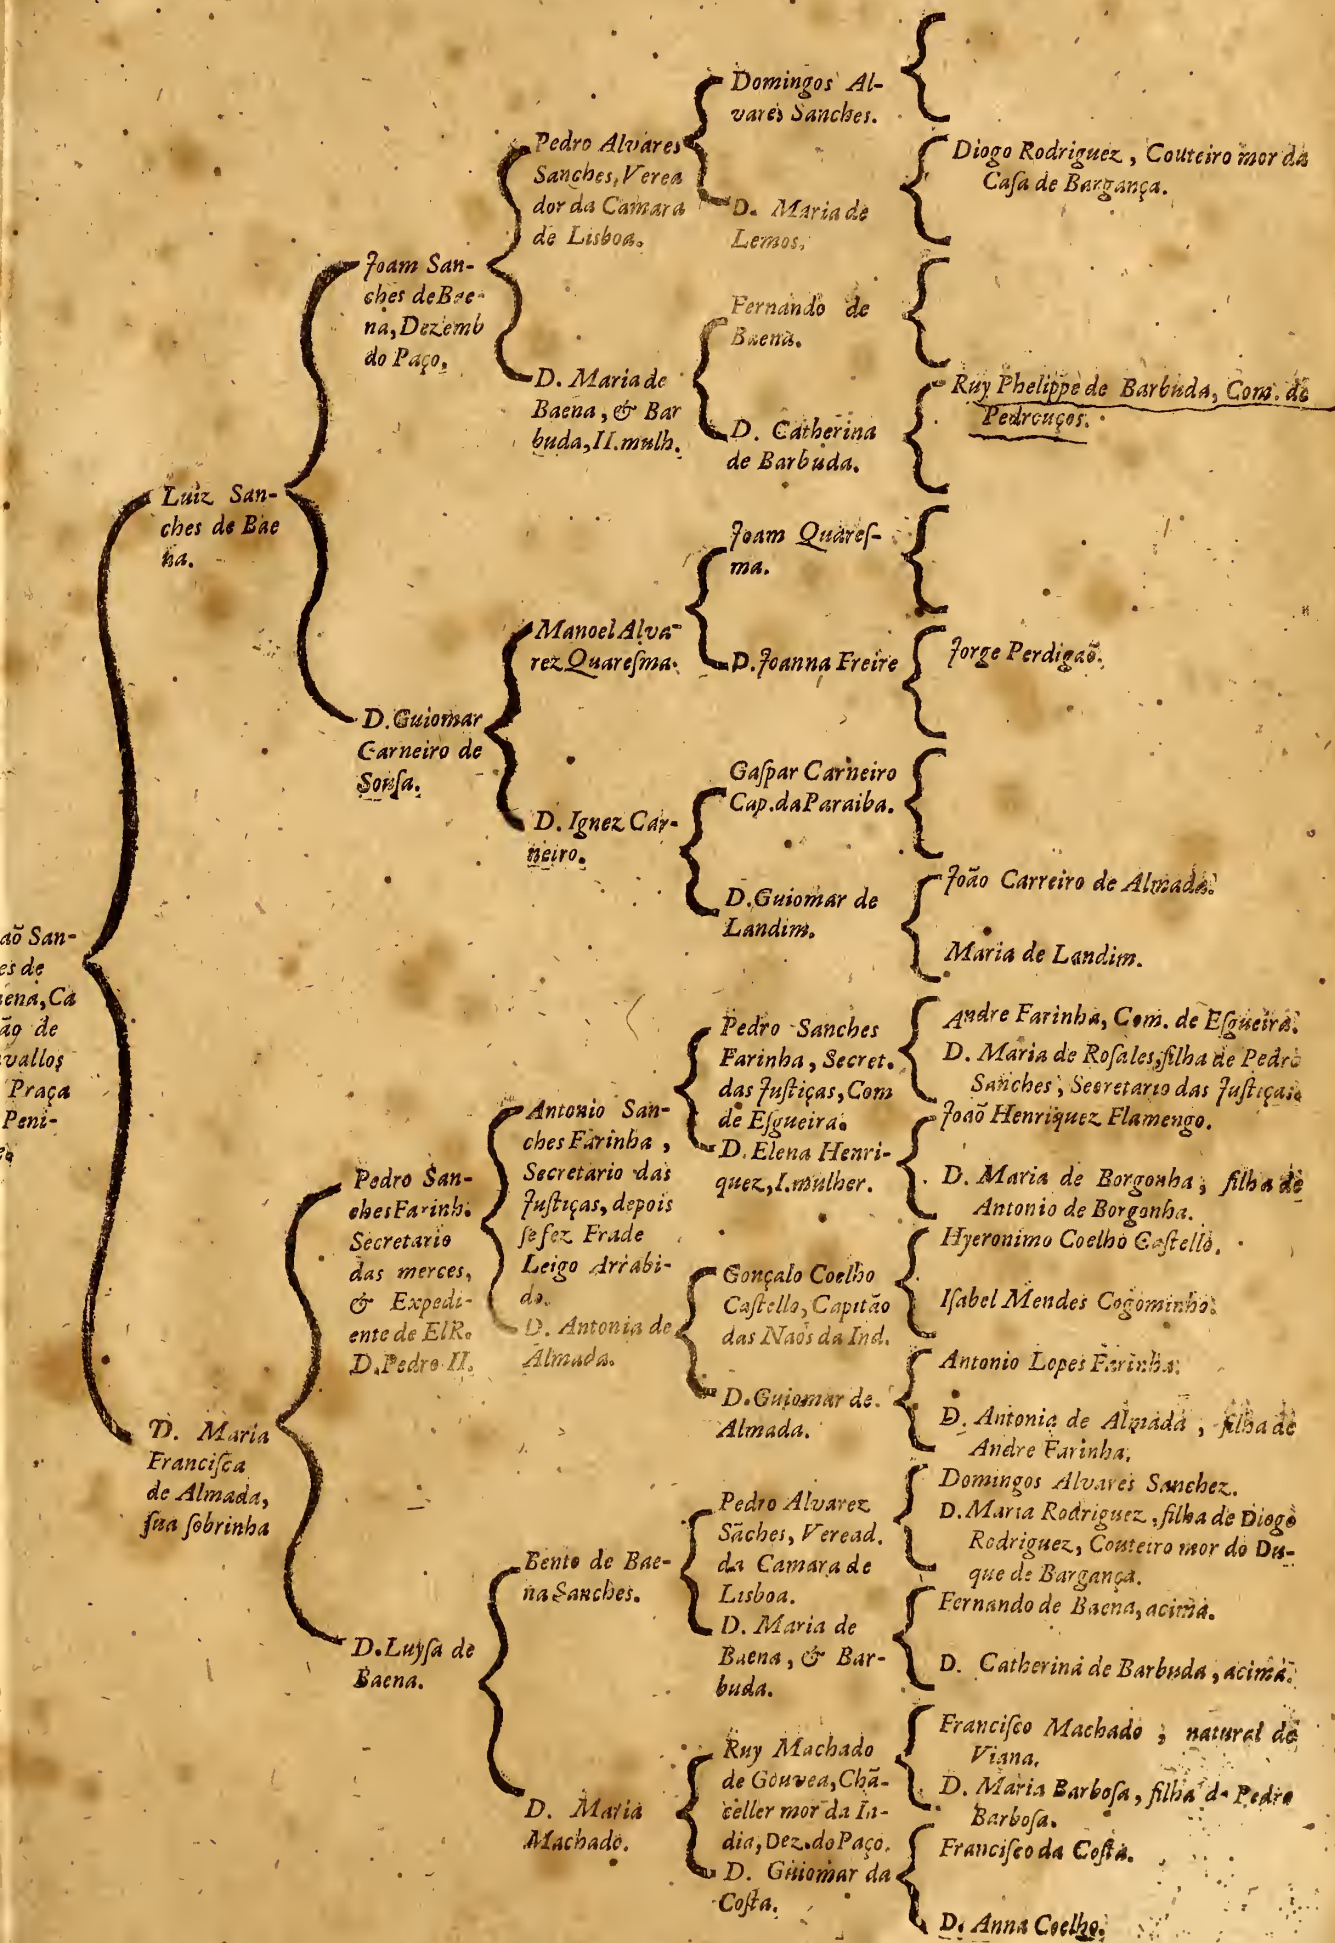 aõ San-
es de
ena, Ca
ão de
vallos
Praça
Peni-
Luiz San-
ches de Bae
na.
D. Maria
Franciſca
de Almada,
ſua ſobrinha
Joam San-
ches de Bae-
na, Dezemb
do Paço,
D. Guiomar
Carneiro de
Souſa.
Pedro San-
ches Farinh.
Secretario
das merces,
& Expedi-
ente de ElR.
D. Pedro II.
D. Luyſa de
Baena.
Pedro Alvares
Sanches, Verea
dor da Camara
de Lisboa.
D. Maria de
Baena, & Bar
buda, II. mulh.
Manoel Alva-
rez Quareſma.
D. Ignez Car-
neiro.
Antonio San-
ches Farinha,
Secretario das
Juſtiças, depois
ſe fez Frade
Leigo Arrabi-
do.
D. Antonia de
Almada.
Bento de Bae-
na Sanches.
D. Maria
Machado.
Domingos Al-
vares Sanches.
D. Maria de
Lemos.
Fernando de
Baena.
D. Catherina
de Barbuda.
Joam Quareſ-
ma.
D. Joanna Freire
Gaſpar Carneiro
Cap. da Paraiba.
D. Guiomar de
Landim.
Pedro Sanches
Farinha, Secret.
das Juſtiças, Com
de Eſgueira.
D. Elena Henri-
quez, I. mulher.
Gonçalo Coelho
Caſtello, Capitão
das Naos da Ind.
D. Guiomar de
Almada.
Pedro Alvarez
Sãches, Veread.
da Camara de
Lisboa.
D. Maria de
Baena, & Bar-
buda.
Ruy Machado
de Gouvea, Chã-
celler mor da In-
dia, Dez. do Paço.
D. Guiomar da
Coſta.
Diogo Rodriguez, Couteiro mor da
Caſa de Bargança.
Ruy Phelippe de Barbuda, Com. de
Pedrouços.
Jorge Perdigaõ.
João Carreiro de Almada.
Maria de Landim.
Andre Farinha, Com. de Eſgueira.
D. Maria de Roſales, filha de Pedro
Sanches, Secretario das Juſtiças.
Joaõ Henriquez Flamengo.
D. Maria de Borgonha, filha de
Antonio de Borgonha.
Hyeronimo Coelho Caſtello.
Iſabel Mendes Cogominho.
Antonio Lopes Farinha.
D. Antonia de Almada, filha de
Andre Farinha.
Domingos Alvares Sanchez.
D. Maria Rodriguez, filha de Diogo
Rodriguez, Couteiro mor do Du-
que de Bargança.
Fernando de Baena, acima.
D. Catherina de Barbuda, acima.
Franciſco Machado, natural de
Viana.
D. Maria Barboſa, filha d. Pedro
Barboſa.
Franciſco da Coſta.
D. Anna Coelho.